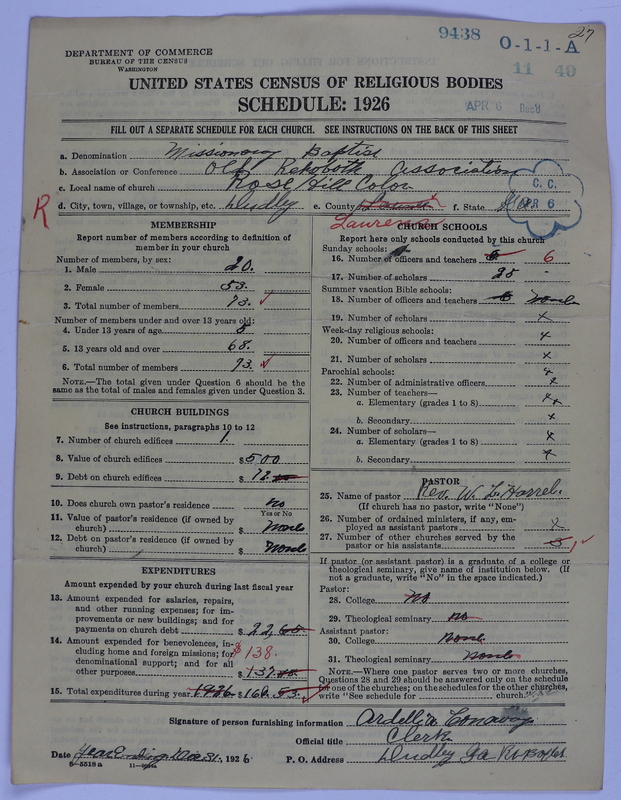 9438 O-1-1-A 27
11 40
APR 6 Dec'd
DEPARTMENT OF COMMERCE
BUREAU OF THE CENSUS
WASHINGTON
UNITED STATES CENSUS OF RELIGIOUS BODIES
SCHEDULE: 1926
FILL OUT A SEPARATE SCHEDULE FOR EACH CHURCH. SEE INSTRUCTIONS ON THE BACK OF THIS SHEET
a. Denomination Missionary Baptist
b. Association or Conference Old Rehoboth Association
c. Local name of church Rose Hill Color
d. City, town, village, or township, etc. Dudley e. County Laurens f. State Ga
C. C.
APR 6
R
MEMBERSHIP
Report number of members according to definition of
member in your church
Number of members, by sex:
1. Male 20.
2. Female 53.
3. Total number of members 73. ✓
Number of members under and over 13 years old:
4. Under 13 years of age 5
5. 13 years old and over 68.
6. Total number of members 73. ✓
NOTE.—The total given under Question 6 should be the
same as the total of males and females given under Question 3.
CHURCH BUILDINGS
See instructions, paragraphs 10 to 12
7. Number of church edifices 1.
8. Value of church edifices $ 500
9. Debt on church edifices $ 12
10. Does church own pastor's residence no
Yes or No
11. Value of pastor's residence (if owned by
church) $ None
12. Debt on pastor's residence (if owned by
church) $ None
EXPENDITURES
Amount expended by your church during last fiscal year
13. Amount expended for salaries, repairs,
and other running expenses; for im-
provements or new buildings; and for
payments on church debt $ 22,
14. Amount expended for benevolences, in-
cluding home and foreign missions; for
denominational support; and for all
other purposes $ 137
$ 138.
15. Total expenditures during year 1926 160.
CHURCH SCHOOLS
Report here only schools conducted by this church
Sunday schools:
16. Number of officers and teachers 6 6
17. Number of scholars 25
Summer vacation Bible schools:
18. Number of officers and teachers None
19. Number of scholars x
Week-day religious schools:
20. Number of officers and teachers x
21. Number of scholars x
Parochial schools: x
22. Number of administrative officers x
23. Number of teachers—
a. Elementary (grades 1 to 8) x x
b. Secondary x
24. Number of scholars—
a. Elementary (grades 1 to 8) x
b. Secondary x
PASTOR
25. Name of pastor Rev. W. L. Harrel.
(If church has no pastor, write "None")
26. Number of ordained ministers, if any, em-
ployed as assistant pastors x
27. Number of other churches served by the
pastor or his assistants 1 ✓
If pastor (or assistant pastor) is a graduate of a college or
theological seminary, give name of institution below. (If
not a graduate, write "No" in the space indicated.)
Pastor:
28. College no
29. Theological seminary no
Assistant pastor:
30. College None
31. Theological seminary None
NOTE.—Where one pastor serves two or more churches,
Questions 28 and 29 should be answered only on the schedule
for one of the churches; on the schedules for the other churches,
write "See schedule for church."
Signature of person furnishing information Ardellia Conaway
Official title Clerk
Date Year Ending Dec 31, 1926 P. O. Address Dudley Ga
8-5518 a